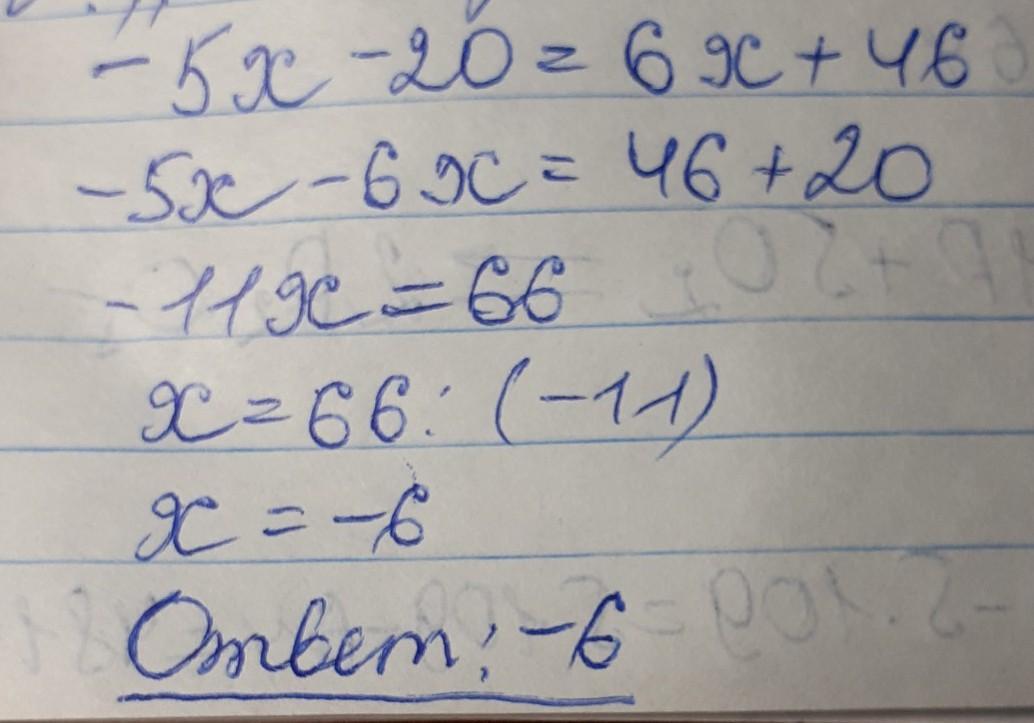 -5x-20=6x+46
-5x-6x=46+20
-11x=66
x=66:(-11)
x=-6
Ответ: -6